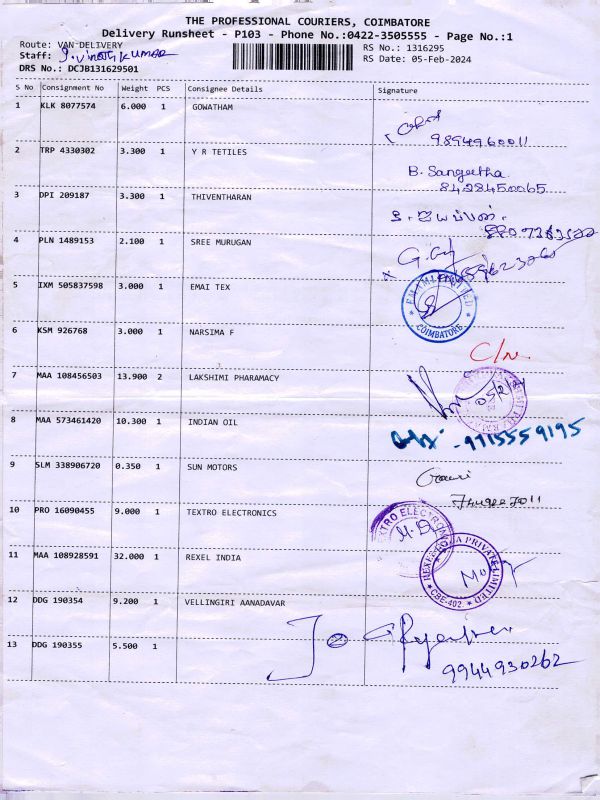 THE PROFESSIONAL COURIERS, COIMBATORE
Delivery Runsheet - P103 - Phone No.:0422-3505555 - Page No.:1
Route: VAN-DELIVERY
RS No.: 1316295
Staff: S. VINOTH KUMAR
RS Date: 05-Feb-2024
DRS No.: DCJB131629501
S No Consignment No Weight PCS Consignee Details Signature
1 KLK 8077574 6.000 1 GOWATHAM
9894960011
2 TRP 4330302 3.300 1 Y R TETILES B. Sangeetha
8428450065
3 DPI 209187 3.300 1 THIVENTHARAN
4 PLN 1489153 2.100 1 SREE MURUGAN
5 IXM 505837598 3.000 1 EMAI TEX
COIMBATORE
6 KSM 926768 3.000 1 NARSIMA F
C/n.
7 MAA 108456503 13.900 2 LAKSHIMI PHARAMACY
05/2/24
8 MAA 573461420 10.300 1 INDIAN OIL
9715559195
9 SLM 338906720 0.350 1 SUN MOTORS
Gowri
10 PRO 16090455 9.000 1 TEXTRO ELECTRONICS
11 MAA 108928591 32.000 1 REXEL INDIA
REXEL INDIA PRIVATE LIMITED
CBE-402
12 DDG 190354 9.200 1 VELLINGIRI AANADAVAR
13 DDG 190355 5.500 1
9944930262